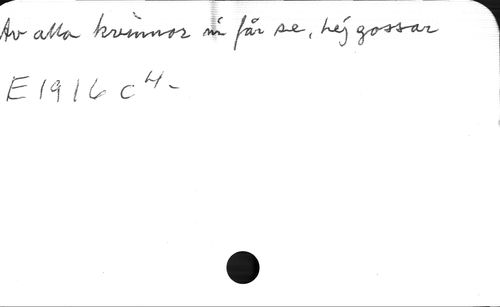 Av alla kvinnor ni får se, hej gossar
E 1916 c 4-